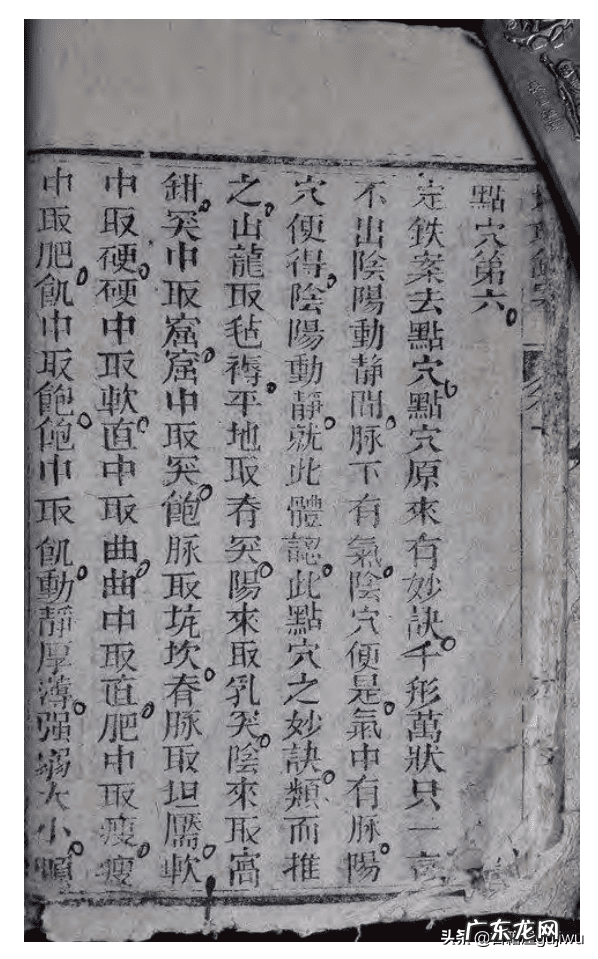 點穴第六
定鉄案去點穴點穴原來有妙訣千形萬狀只一言
不出陰陽動靜間脉下有氣陰穴便是氣中有脉陽
穴便得陰陽動靜就此體認此點穴之妙訣類而推
之山龍取毡褥平地取脊突陽來取乳突陰來取窩
鉗突中取窟窟中取突飽脉取坑坎脊脉取坦靨軟
中取硬硬中取軟直中取曲曲中取直肥中取瘦瘦
中取肥飢中取飽飽中取飢動靜厚薄强弱大小順
头条
广东龙网